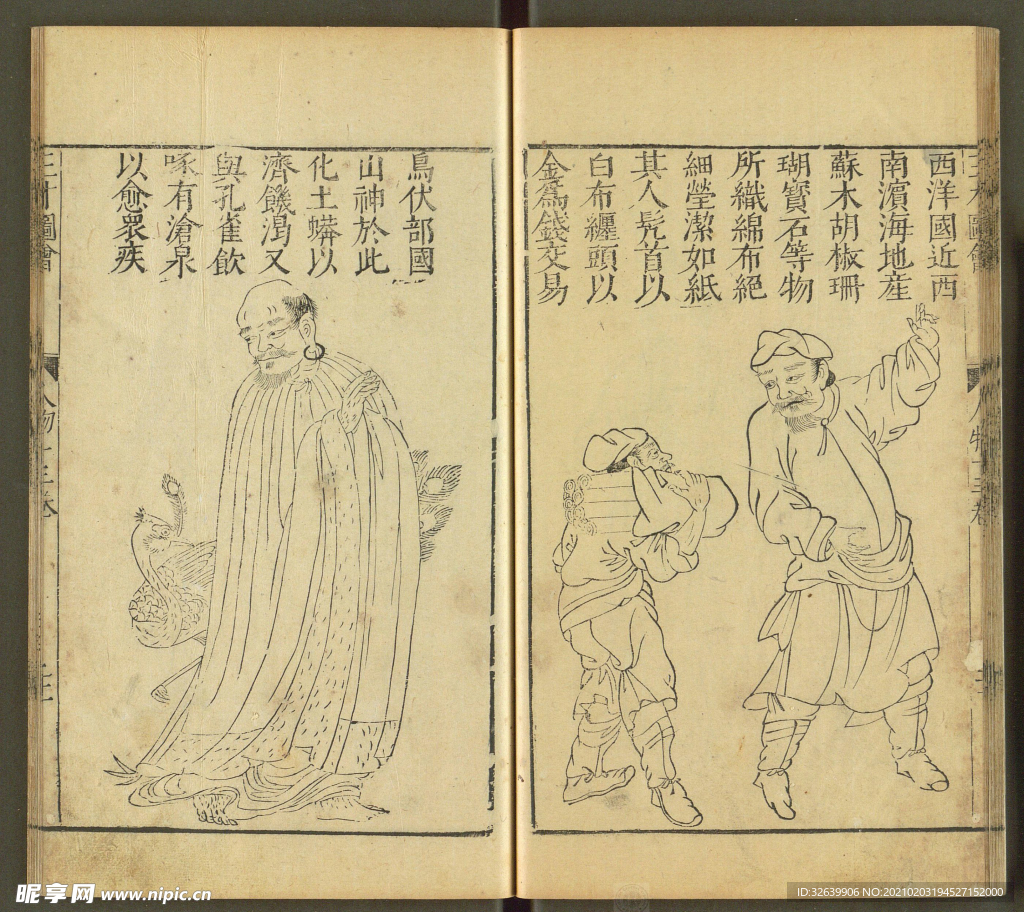 西洋國近西
南濵海地産
蘇木胡椒珊
瑚寳石等物
所織綿布絕
細瑩潔如紙
其人髠首以
白布纏頭以
金爲錢交易
烏伏部國
山神於此
化土蟒以
濟饑渇又
與孔雀飲
啄有滄泉
以愈衆疾
人物十三卷
昵享网 www.nipic.cn
ID:32639906 NO:20210203194527152000